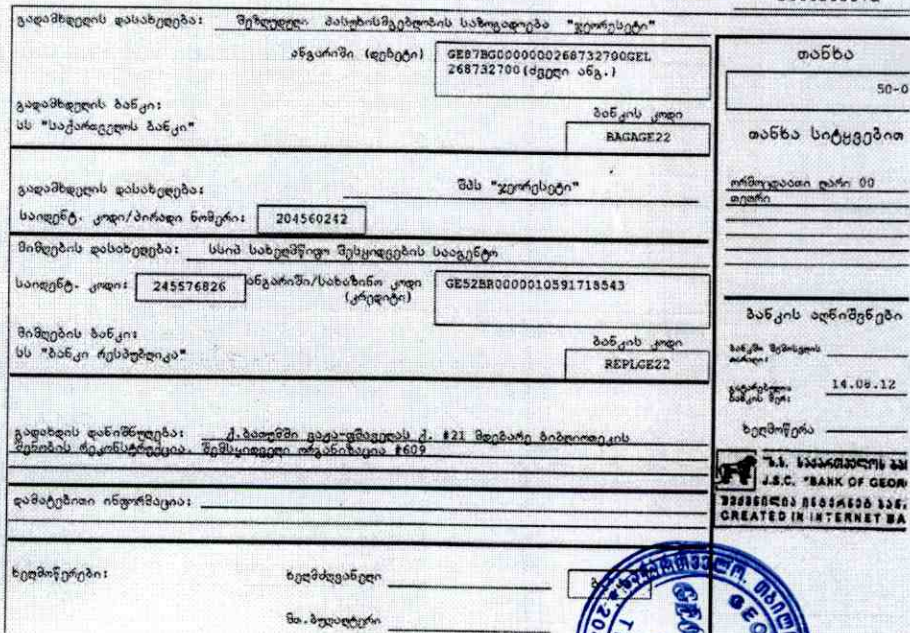 გადამხდელის დასახელება: შეზღუდული პასუხისმგებლობის საზოგადოება "ჯეორესეტი"
ანგარიში (დებეტი)
GE87BG0000000268732700GEL
268732700(ძველი ანგ.)
გადამხდელის ბანკი:
სს "საქართველოს ბანკი"
ბანკის კოდი
BAGAGE22
გადამხდელის დასახელება: შპს "ჯეორესეტი"
საიდენტ. კოდი/პირადი ნომერი: 204560242
მიმღების დასახელება: სსიპ სახელმწიფო შესყიდვების სააგენტო
საიდენტ. კოდი: 245576826 ანგარიში/სახაზინო კოდი
(კრედიტი)
GE52BR0000010591718543
მიმღების ბანკი:
სს "ბანკი რესპუბლიკა"
ბანკის კოდი
REPLGE22
გადახდის დანიშნულება: ქ.ბათუმში ვაჟა-ფშაველას ქ. #21 მდებარე ბიბლიოთეკის
შენობის რეკონსტრუქცია. შემსყიდველი ორგანიზაცია #609
დამატებითი ინფორმაცია:
ხელმოწერები: ხელმძღვანელი
მთ.ბუღალტერი
თანხა
50-0
თანხა სიტყვებით
ორმოცდაათი ლარი 00
თეთრი
ბანკის აღნიშვნები
ბანკში შემოსვლის
თარიღი:
გატარებულია
ბანკის მერ: 14.08.12
ხელმოწერა
ს.ს. საქართველოს ბან
J.S.C. "BANK OF GEOR
შექმნილია ინტერნეტ ბან.
CREATED IN INTERNET BA